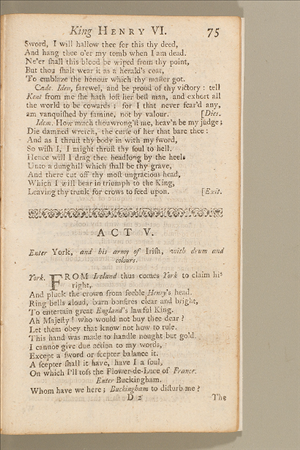 King HENRY VI. 75
Sword, I will hallow thee for this thy deed,
And hang thee o'er my tomb when I am dead.
Ne'er shall this blood be wiped from thy point,
But thou shalt wear it as a herald's coat,
To emblaze the honour which thy master got.
Cade. Iden, farewel, and be proud of thy victory: tell
Kent from me she hath lost her best man, and exhort all
the world to be cowards; for I that never fear'd any,
am vanquished by famine, not by valour. [Dies.
Iden. How much thou wrong'st me, heav'n be my judge;
Die damned wretch, the curse of her that bare thee:
And as I thrust thy body in with my sword,
So wish I, I might thrust thy soul to hell.
Hence will I drag thee headlong by the heels
Unto a dunghill which shall be thy grave,
And there cut off thy most ungracious head,
Which I will bear in triumph to the King,
Leaving thy trunk for crows to feed upon. [Exit.
ACT V.
Enter York, and his army of Irish, with drum and
colours.
York. FROM Ireland thus comes York to claim his
right,
And pluck the crown from feeble Henry's head.
Ring bells aloud, burn bonfires clear and bright,
To entertain great England's lawful King.
Ah Majesty! who would not buy thee dear?
Let them obey that know not how to rule.
This hand was made to handle nought but gold.
I cannot give due action to my words,
Except a sword or scepter balance it.
A scepter shall it have, have I a soul,
On which I'll toss the Flower-de-Luce of France.
Enter Buckingham.
Whom have we here; Buckingham to disturb me?
D 2 The